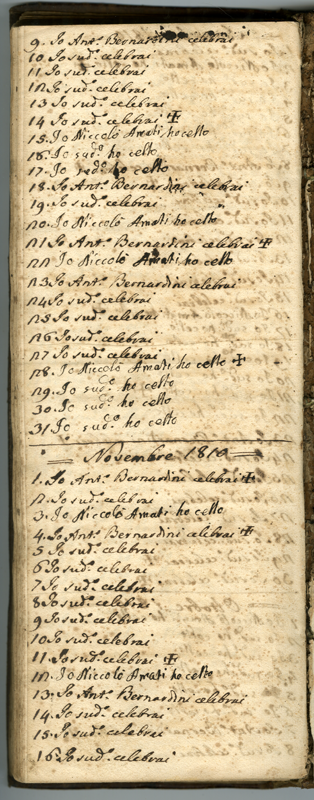 9. Io Ant.º Bernardini celebrai
10. Io sud.º celebrai
11. Io sud.º celebrai
12. Io sud.º celebrai
13 Io sud.º celebrai
14 Io sud.º celebrai ✠
15. Io Niccolò Amati ho celto
16. Io sud.º ho celto
17. Io sud.º ho celto
18. Io Ant.º Bernardini celebrai
19. Io sud.º celebrai
20. Io Niccolò Amati ho celto
21 Io Ant.º Bernardini celebrai ✠
22 Io Niccolò Amati ho celto
23. Io Ant.º Bernardini celebrai
24. Io sud.º celebrai
25. Io sud.º celebrai
26 Io sud.º celebrai
27 Io sud.º celebrai
28. Io Niccolò Amati ho celto ✠
29. Io sud.º ho celto
30. Io sud.º ho celto
31. Io sud.º ho celto
Novembre 1810
1. Io Ant.º Bernardini celebrai ✠
2. Io sud.º celebrai
3. Io Niccolò Amati ho celto
4. Io Ant.º Bernardini celebrai ✠
5 Io sud.º celebrai
6 Io sud.º celebrai
7 Io sud.º celebrai
8 Io sud.º celebrai
9 Io sud.º celebrai
10 Io sud.º celebrai
11. Io sud.º celebrai ✠
12. Io Niccolò Amati ho celto
13. Io Ant.º Bernardini celebrai
14. Io sud.º celebrai
15. Io sud.º celebrai
16. Io sud.º celebrai